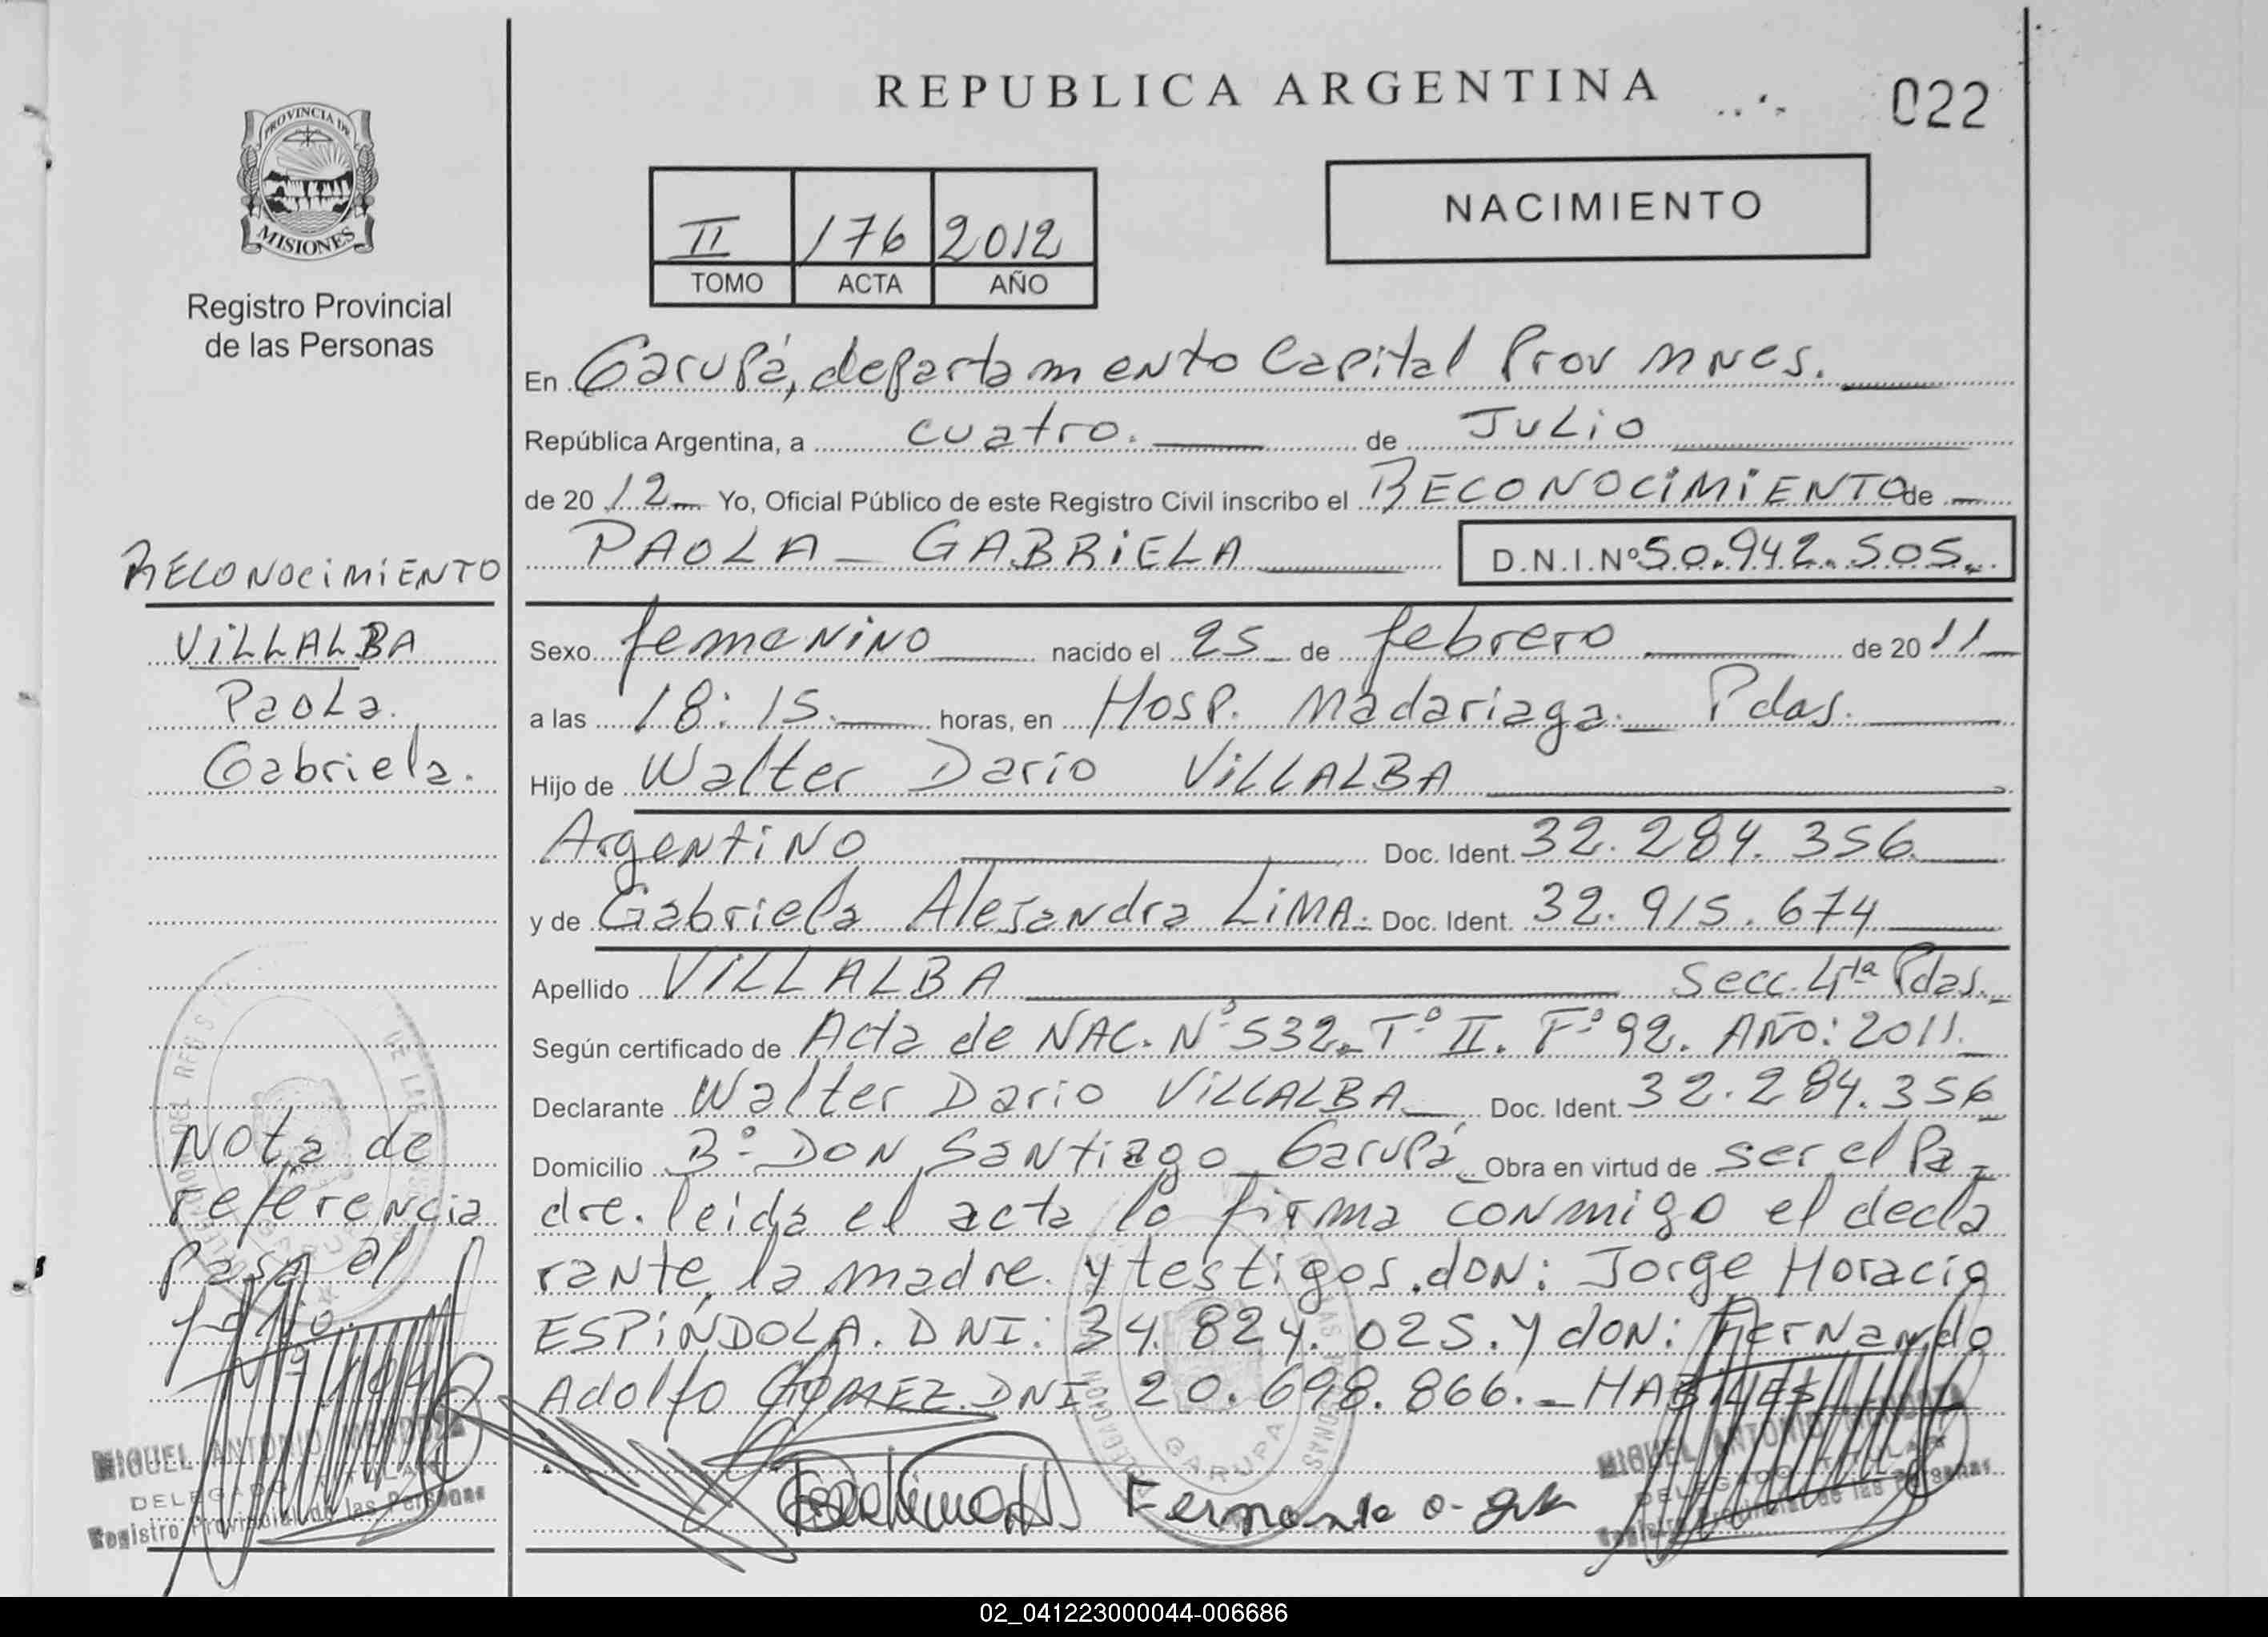 REPUBLICA ARGENTINA
022
PROVINCIA DE
MISIONES
Registro Provincial
de las Personas
II 176 2012
TOMO ACTA AÑO
NACIMIENTO
En Garupá, departamento Capital Prov Mnes.
República Argentina, a cuatro. de Julio
de 20 12 Yo, Oficial Público de este Registro Civil inscribo el RECONOCIMIENTO de
PAOLA - GABRIELA D.N.I.Nº 50.942.505.
RECONOCIMIENTO
VILLALBA
Paola.
Gabriela.
Sexo femenino nacido el 25 de febrero de 20 11
a las 18:15 horas, en Hosp. Madariaga. Pdas.
Hijo de Walter Dario VILLALBA
Argentino Doc. Ident. 32.284.356
y de Gabriela Alejandra LIMA. Doc. Ident. 32.915.674
Apellido VILLALBA Secc. 4ta Pdas.
Según certificado de Acta de NAC. Nº 532. Tº II. Fº 92. AÑO: 2011.
Declarante Walter Dario VILLALBA Doc. Ident. 32.284.356
Domicilio Bº DON Santiago Garupá Obra en virtud de ser el Pa-
dre. leida el acta lo firma conmigo el decla
rante, la madre. y testigos. don: Jorge Horacio
ESPÍNDOLA. DNI: 34.824.025. y don: Fernando
Adolfo GOMEZ. DNI 20.698.866. - HABILES
Nota de
referencia
pasa al
MIGUEL ANTONIO MENDOZA
DELEGADO TITULAR
Registro Provincial de las Personas
GARUPA
Fernando
MIGUEL ANTONIO MENDOZA
DELEGADO TITULAR
Registro Provincial de las Personas
02_041223000044-006686